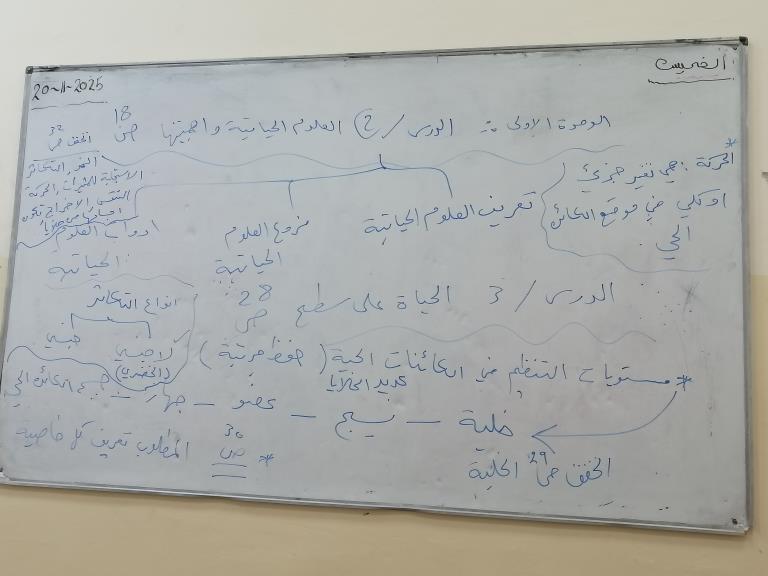 الخميس
20-11-2025
الوحدة الاولى :: الدرس / 2 العلوم الحياتية واهميتها ص 18
الحفظ ص 32
* الحركة : هي تغير جزئي
او كلي في موقع الكائن
الحي .
النمو , التكاثر
الاستجابة للمثيرات , الحركة
التنفس , الاخراج
تعريف العلوم الحياتية
فروع العلوم
الحياتية
ادوات العلوم
الحياتية
الدرس / 3 الحياة على سطح
ص 28
انواع التكاثر
جنسي
لاجنسي
(الخضري)
* مستويات التنظيم في الكائنات الحية ( حفظ مرتبة )
عديد الخلايا
خلية – نسيج – عضو – جهاز – جسم الكائن الحي
الحفظ ص 29 الخلية
* ص 30 المطلوب تعريف كل خاصية